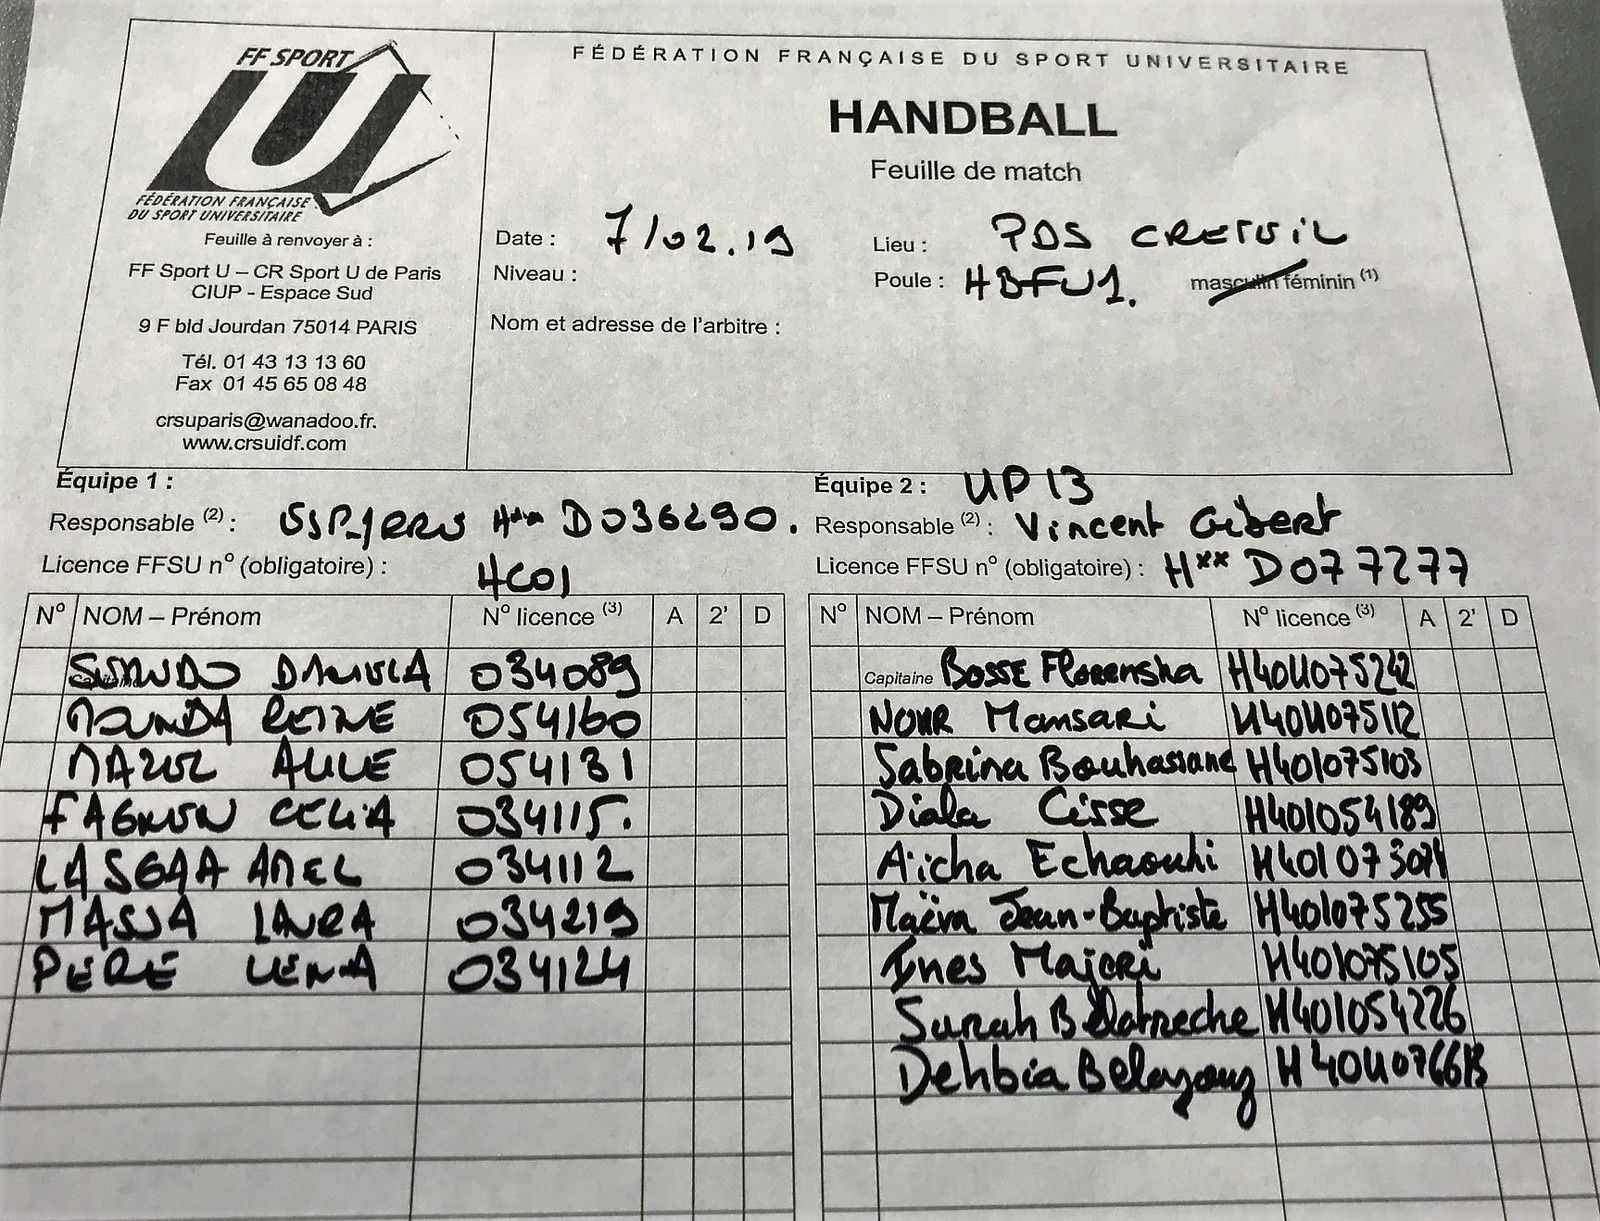 FF SPORT
U
FÉDÉRATION FRANÇAISE
DU SPORT UNIVERSITAIRE
Feuille à renvoyer à :
FF Sport U – CR Sport U de Paris
CIUP - Espace Sud
9 F bld Jourdan 75014 PARIS
Tél. 01 43 13 13 60
Fax 01 45 65 08 48
crsuparis@wanadoo.fr.
www.crsuidf.com
FÉDÉRATION FRANÇAISE DU SPORT UNIVERSITAIRE
HANDBALL
Feuille de match
Date : 7/02.19
Lieu : PDS CRETEIL
Niveau :
Poule : HBFU1. masculin féminin (1)
Nom et adresse de l'arbitre :
Équipe 1 :
Responsable (2) : D036290.
Licence FFSU n° (obligatoire) : HC01
N° NOM – Prénom N° licence (3) A 2' D
Capitaine 034089
REINE 054160
054131
CELIA 034115.
LASGAA AMEL 034112
MASSA LAURA 034219
PERE LENA 034124
Équipe 2 : UP 13
Responsable (2) : Vincent Gibert
Licence FFSU n° (obligatoire) : H** D077277
N° NOM – Prénom N° licence (3) A 2' D
Capitaine BOSSE Florenska H4011075242
NOUR Mansari H4011075112
Sabrina Bouhassane H401075103
Diala Cisse H401054189
Aïcha Echaouhi H401073074
Maëva Jean-Baptiste H401075255
Ines Majeri H401075105
Sarah Belatreche H401054226
Dehbia